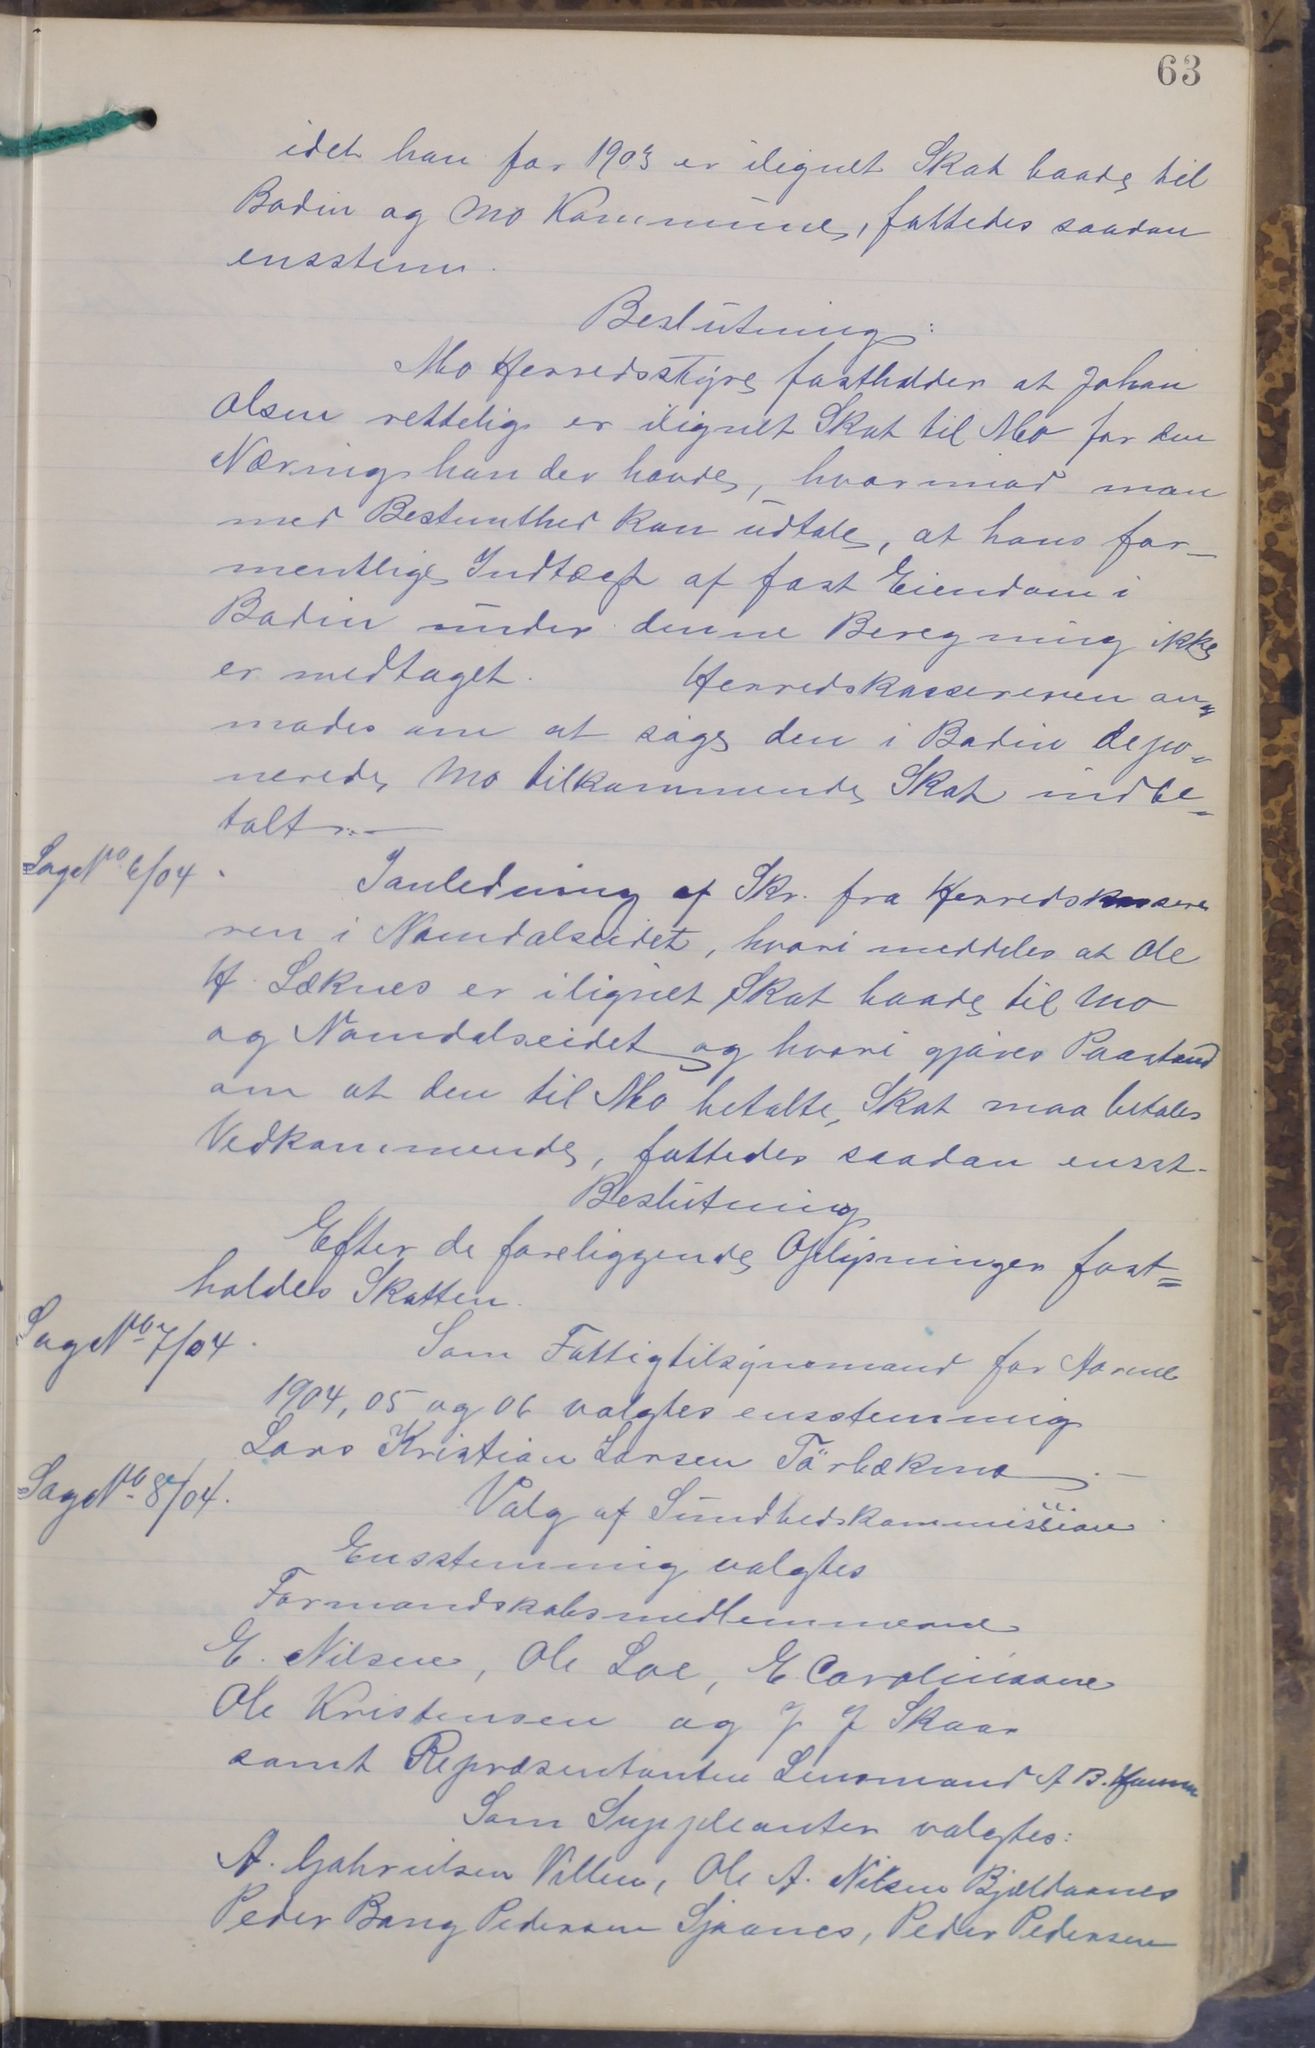 63
idet han for 1903 er ilignet Skat baade til
Bodin og Mo Kommune, fattedes saadan
ensstem.
Beslutning:
Mo Herredsstyre fastholder at Johan
Olsen rettelig er ilignet Skat til Mo for den
Næring han der havde, hvorimod man
med Bestemthed kan udtale, at hans for-
mentlige Indtægt af fast Eiendom i
Bodin under denne Beregning ikke
er medtaget. Herredskassereren an-
modes om at søge den i Bodin depo-
nerede Mo tilkommende Skat indbe-
talt.
Sag No 6/04.
I anledning af Skr. fra Herredskassere
ren i Namdalseidet, hvori meddeles at Ole
H. Læknes er ilignet Skat baade til Mo
og Namdalseidet og hvori gjøres Paastand
om at den til Mo betalte Skat maa betales
Vedkommende, fattedes saadan ensst.
Beslutning
Efter de foreliggende Oplysninger fast=
holdes Skatten.
Sag No 7/04.
Som Fattigtilsynsmand for
1904, 05 og 06 valgtes ensstemmig
Lars Kristian Larsen
Sag No 8/04.
Valg af Sundhedskommission
Ensstemmig valgtes
Formandskabsmedlemmerne
E. Nilsen, Ole Loe, E. Carolinssøne
Ole Kristensen og J J Skaar
samt Repræsentanten Lensmand A B.
Som Suppleanter valgtes:
A. Gabrielsen Villen, Ole A. Nilsen Bjeldaanes
Peder Bang Pedersen Sjaanes, Peder Pedersen